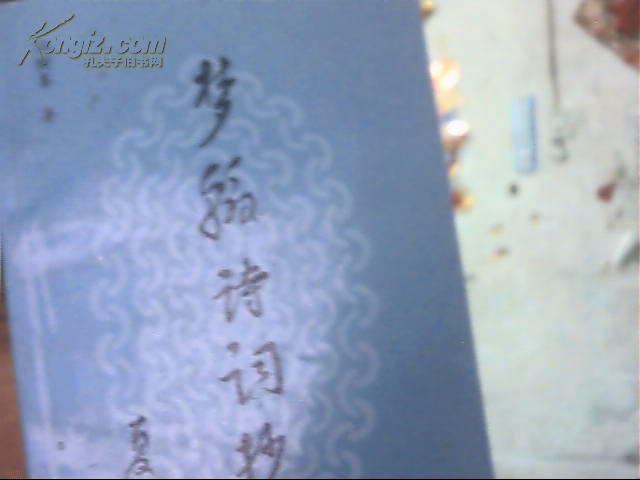 Kongfz.com
孔夫子旧书网
著
梦翰诗词抄
夏